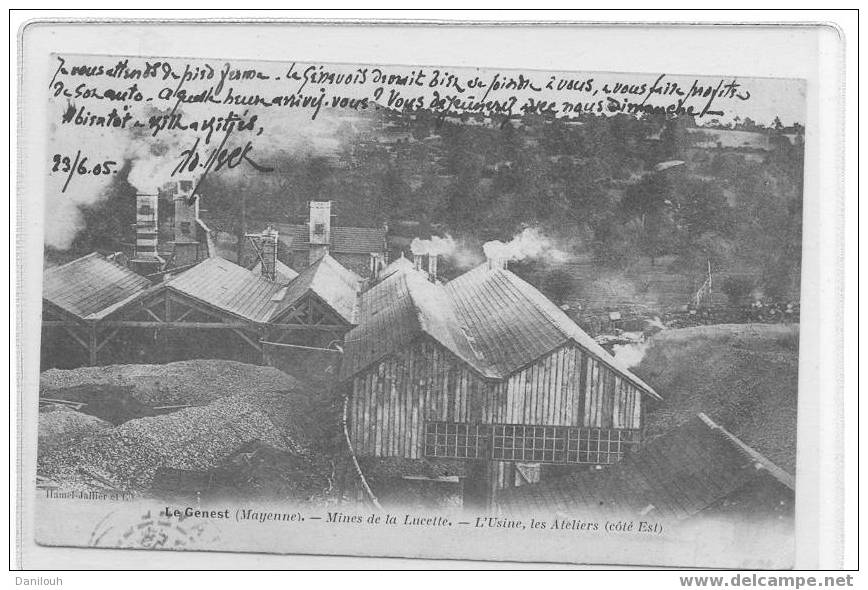 Je vous attends de pied ferme. Le Génevois devrait bien se joindre à vous, & vous faire profiter
de son auto. A quelle heure arrivez-vous? Vous déjeunerez avec nous dimanche,
A bientôt & mille amitiés,
23/6.05.
Hamel-Jallier et Cie
Le Genest (Mayenne). — Mines de la Lucette. — L'Usine, les Ateliers (côté Est)
Danilouh
http://www.delcampe.net